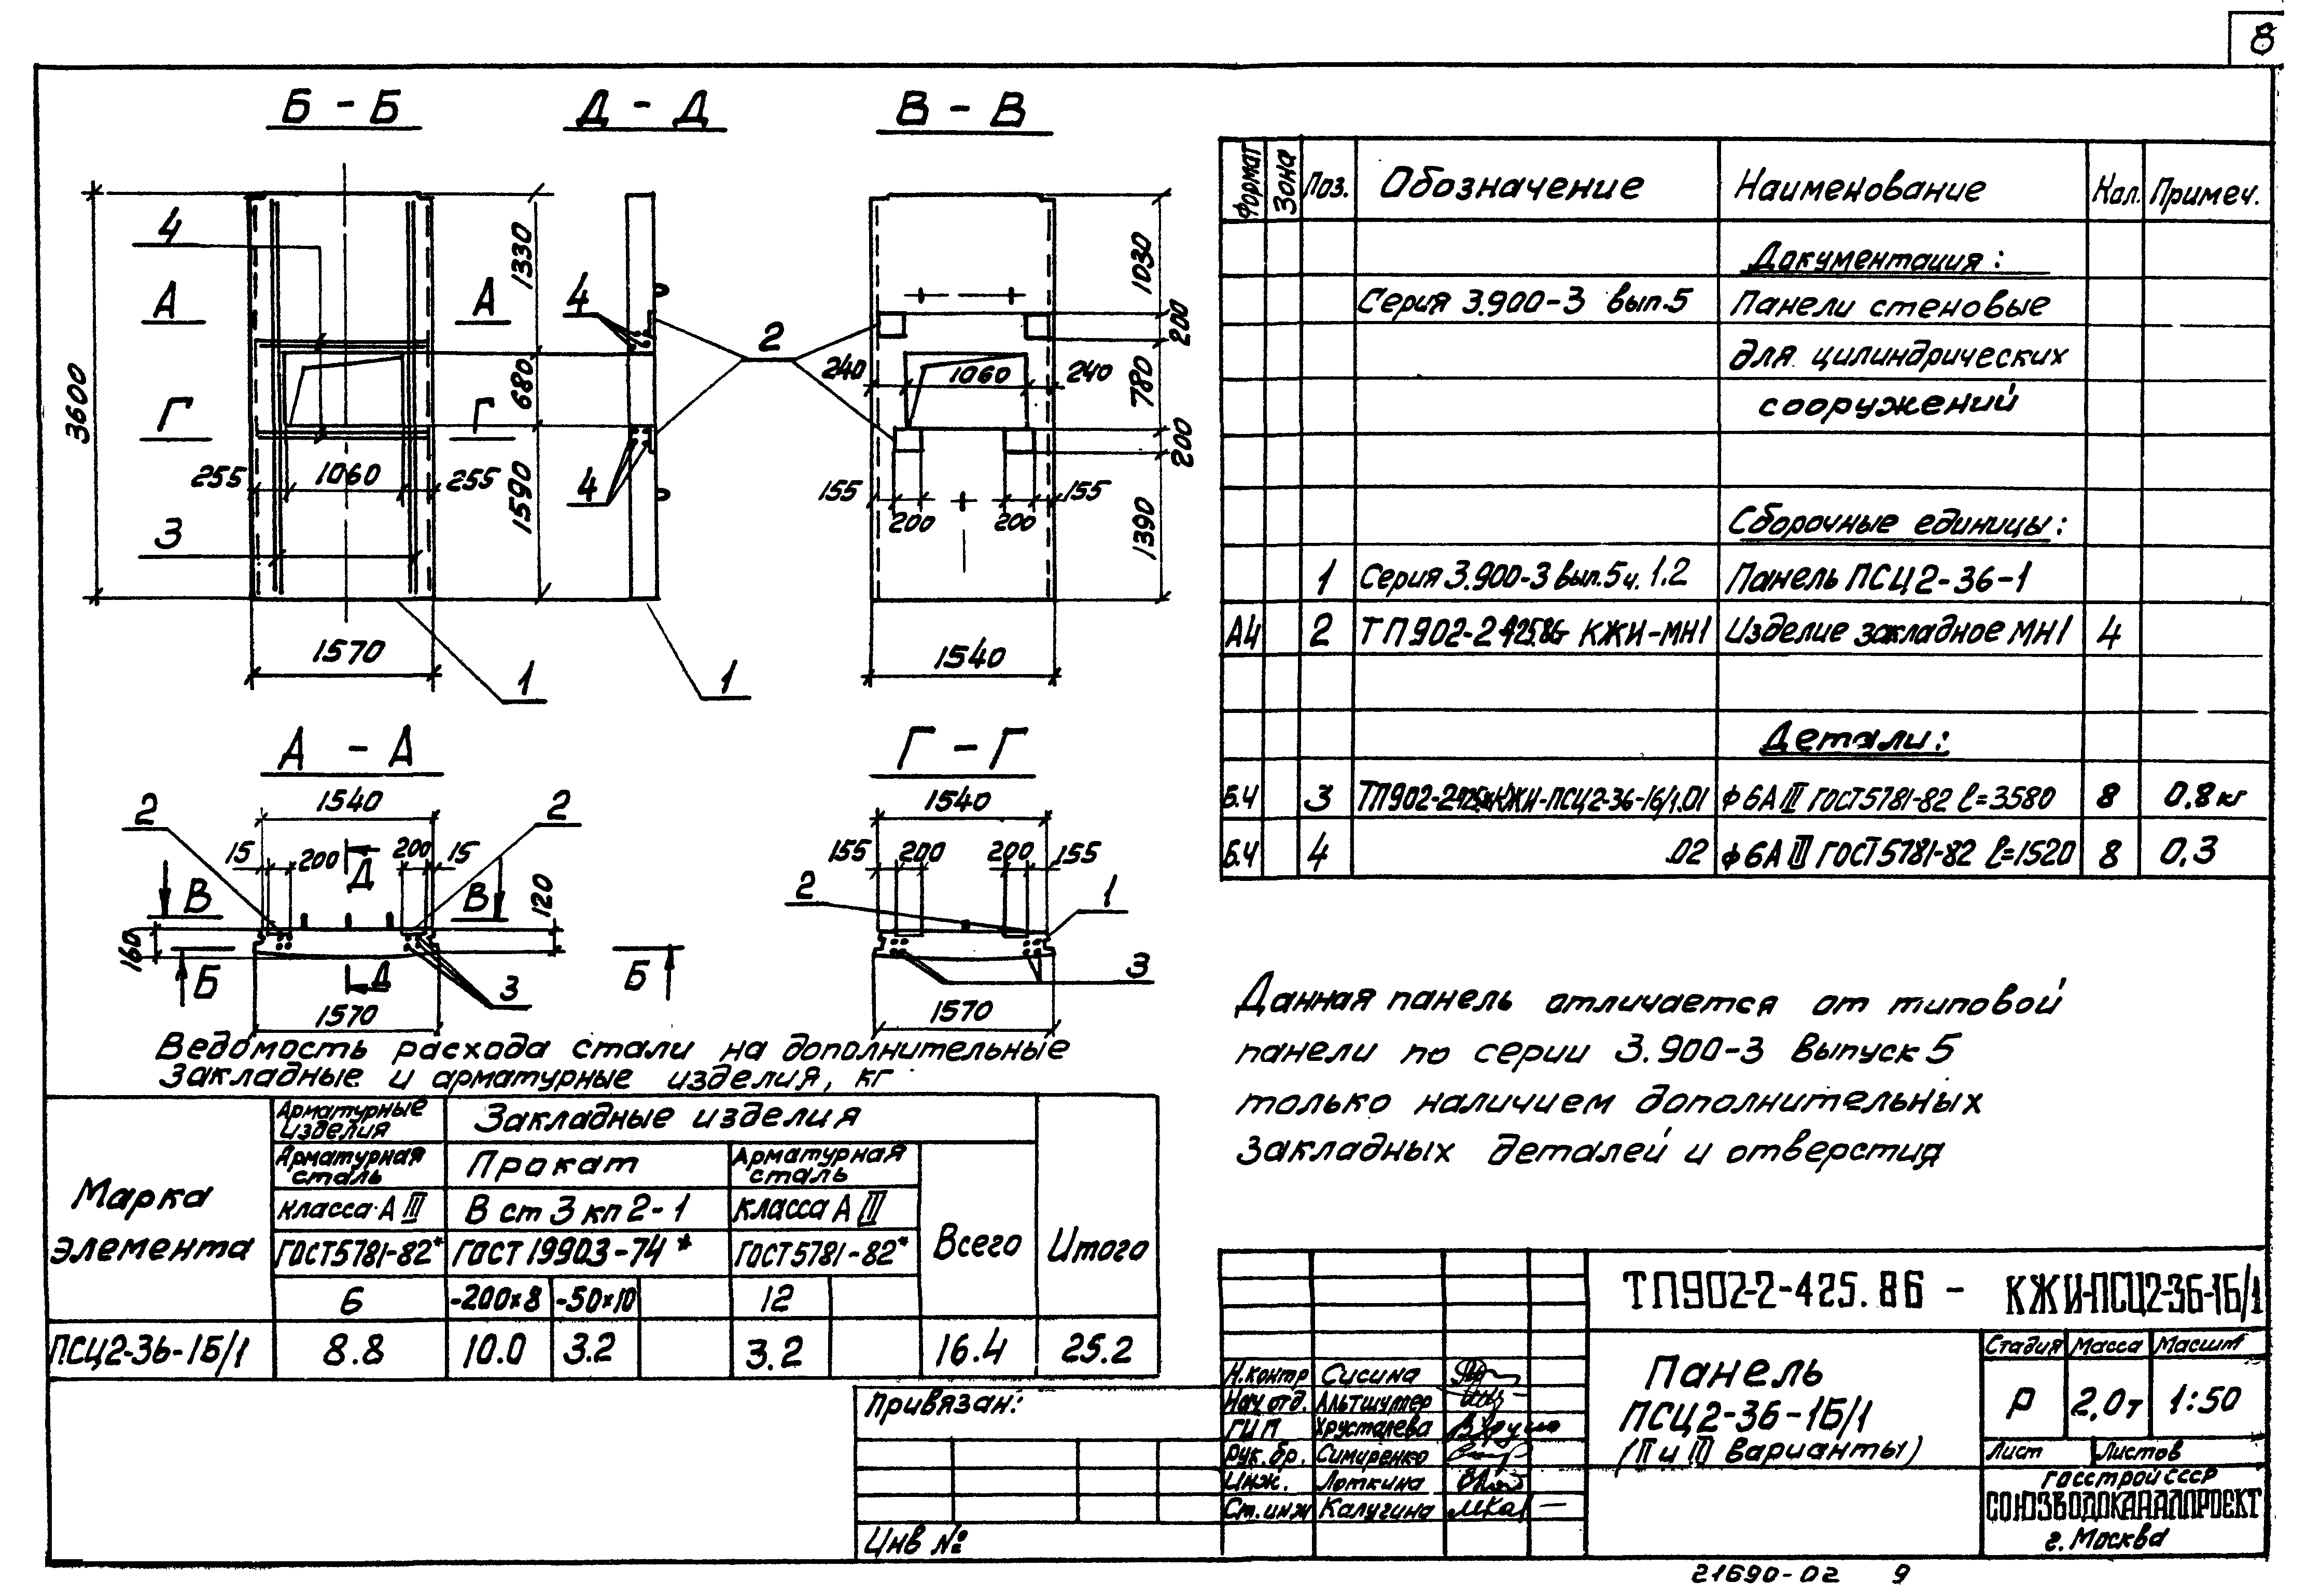 8
Б - Б
Д - Д
В - В
4
А
А
Г
Г
3600
1330
680
1590
255
1060
255
3
1570
1
4
4
2
1
1030
200
780
200
1390
240
1060
240
155
200
200
155
1540
А - А
1540
2
2
15
200
Д
200
15
В
В
120
160
Б
Д
3
Б
1570
Г - Г
1540
155
200
200
155
2
1
3
1570
Формат Зона Поз. Обозначение Наименование Кол. Примеч.
Документация:
Серия 3.900-3 вып.5 Панели стеновые
для цилиндрических
сооружений
Сборочные единицы:
1 Серия 3.900-3 вып.5 ч. 1.2 Панель ПСЦ2-36-1
А4 2 ТП902-2-425.86 КЖИ-МН1 Изделие закладное МН1 4
Детали:
Б.Ч 3 ТП902-2-425.86 КЖИ-ПСЦ2-36-1Б/1.01 ф6АIII ГОСТ5781-82 ℓ=3580 8 0,8кг
Б.Ч 4 .02 ф6АIII ГОСТ5781-82 ℓ=1520 8 0,3
Данная панель отличается от типовой
панели по серии 3.900-3 выпуск 5
только наличием дополнительных
закладных деталей и отверстия
Ведомость расхода стали на дополнительные
закладные и арматурные изделия, кг
Марка элемента
Арматурные изделия
Закладные изделия
Арматурная сталь
Прокат
Арматурная сталь
класса АIII
Вст3кп2-1
класса АIII
Всего
Итого
ГОСТ5781-82*
ГОСТ19903-74*
ГОСТ5781-82*
6 -200×8 -50×10 12
ПСЦ2-36-1Б/1 8.8 10.0 3.2 3.2 16.4 25.2
Привязан:
Инв №
ТП902-2-425.86 - КЖИ-ПСЦ2-36-1Б/1
Н.контр Сусина
Нач.отд. Альтшулер
ГИП Хрусталева
Рук.бр. Симиренко
Инж. Лоткина
Ст.инж Калугина
Панель
ПСЦ2-36-1Б/1
(II и III варианты)
Стадия Масса Масшт
Р 2,0т 1:50
Лист Листов
Госстрой СССР
СОЮЗВОДОКАНАЛПРОЕКТ
г. Москва
21690-02 9